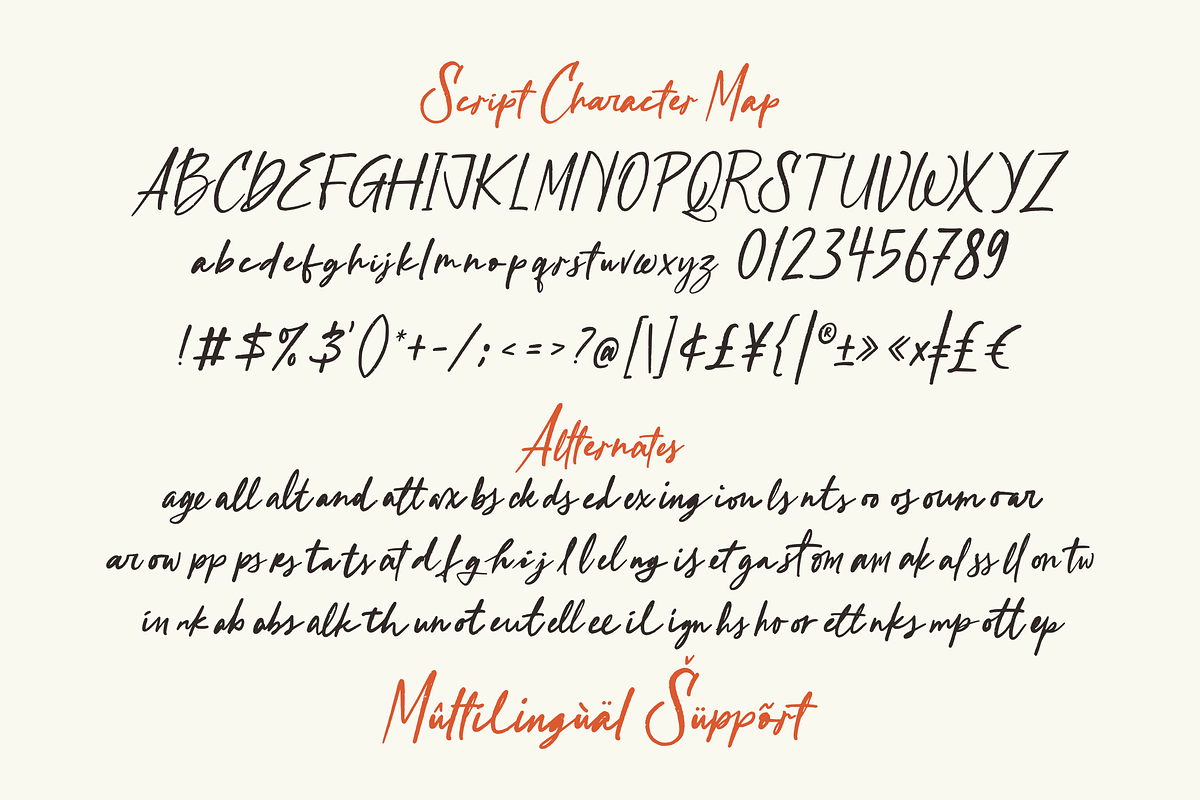 Script Character Map
ABCDEFGHIJKLMNOPQRSTUVWXYZ
abcdefghijklmnopqrstuvwxyz 0123456789
!#$%$'()*+-/; <=>?@[\|]¢£¥{|®±»«×ǂ£€
Altternates
age all alt and att ax bs ck ds ed ex ing ion ls nts oo os oum oar
ar ow pp ps rs ta ts at d f g h i j l l el ng is et ga st om am ak al ss ll on tw
in nk ab abs alk th un ot eut ell ee il ign hs ho or ett nks mp ott ep
Mûttilingùäl Šüppõrt